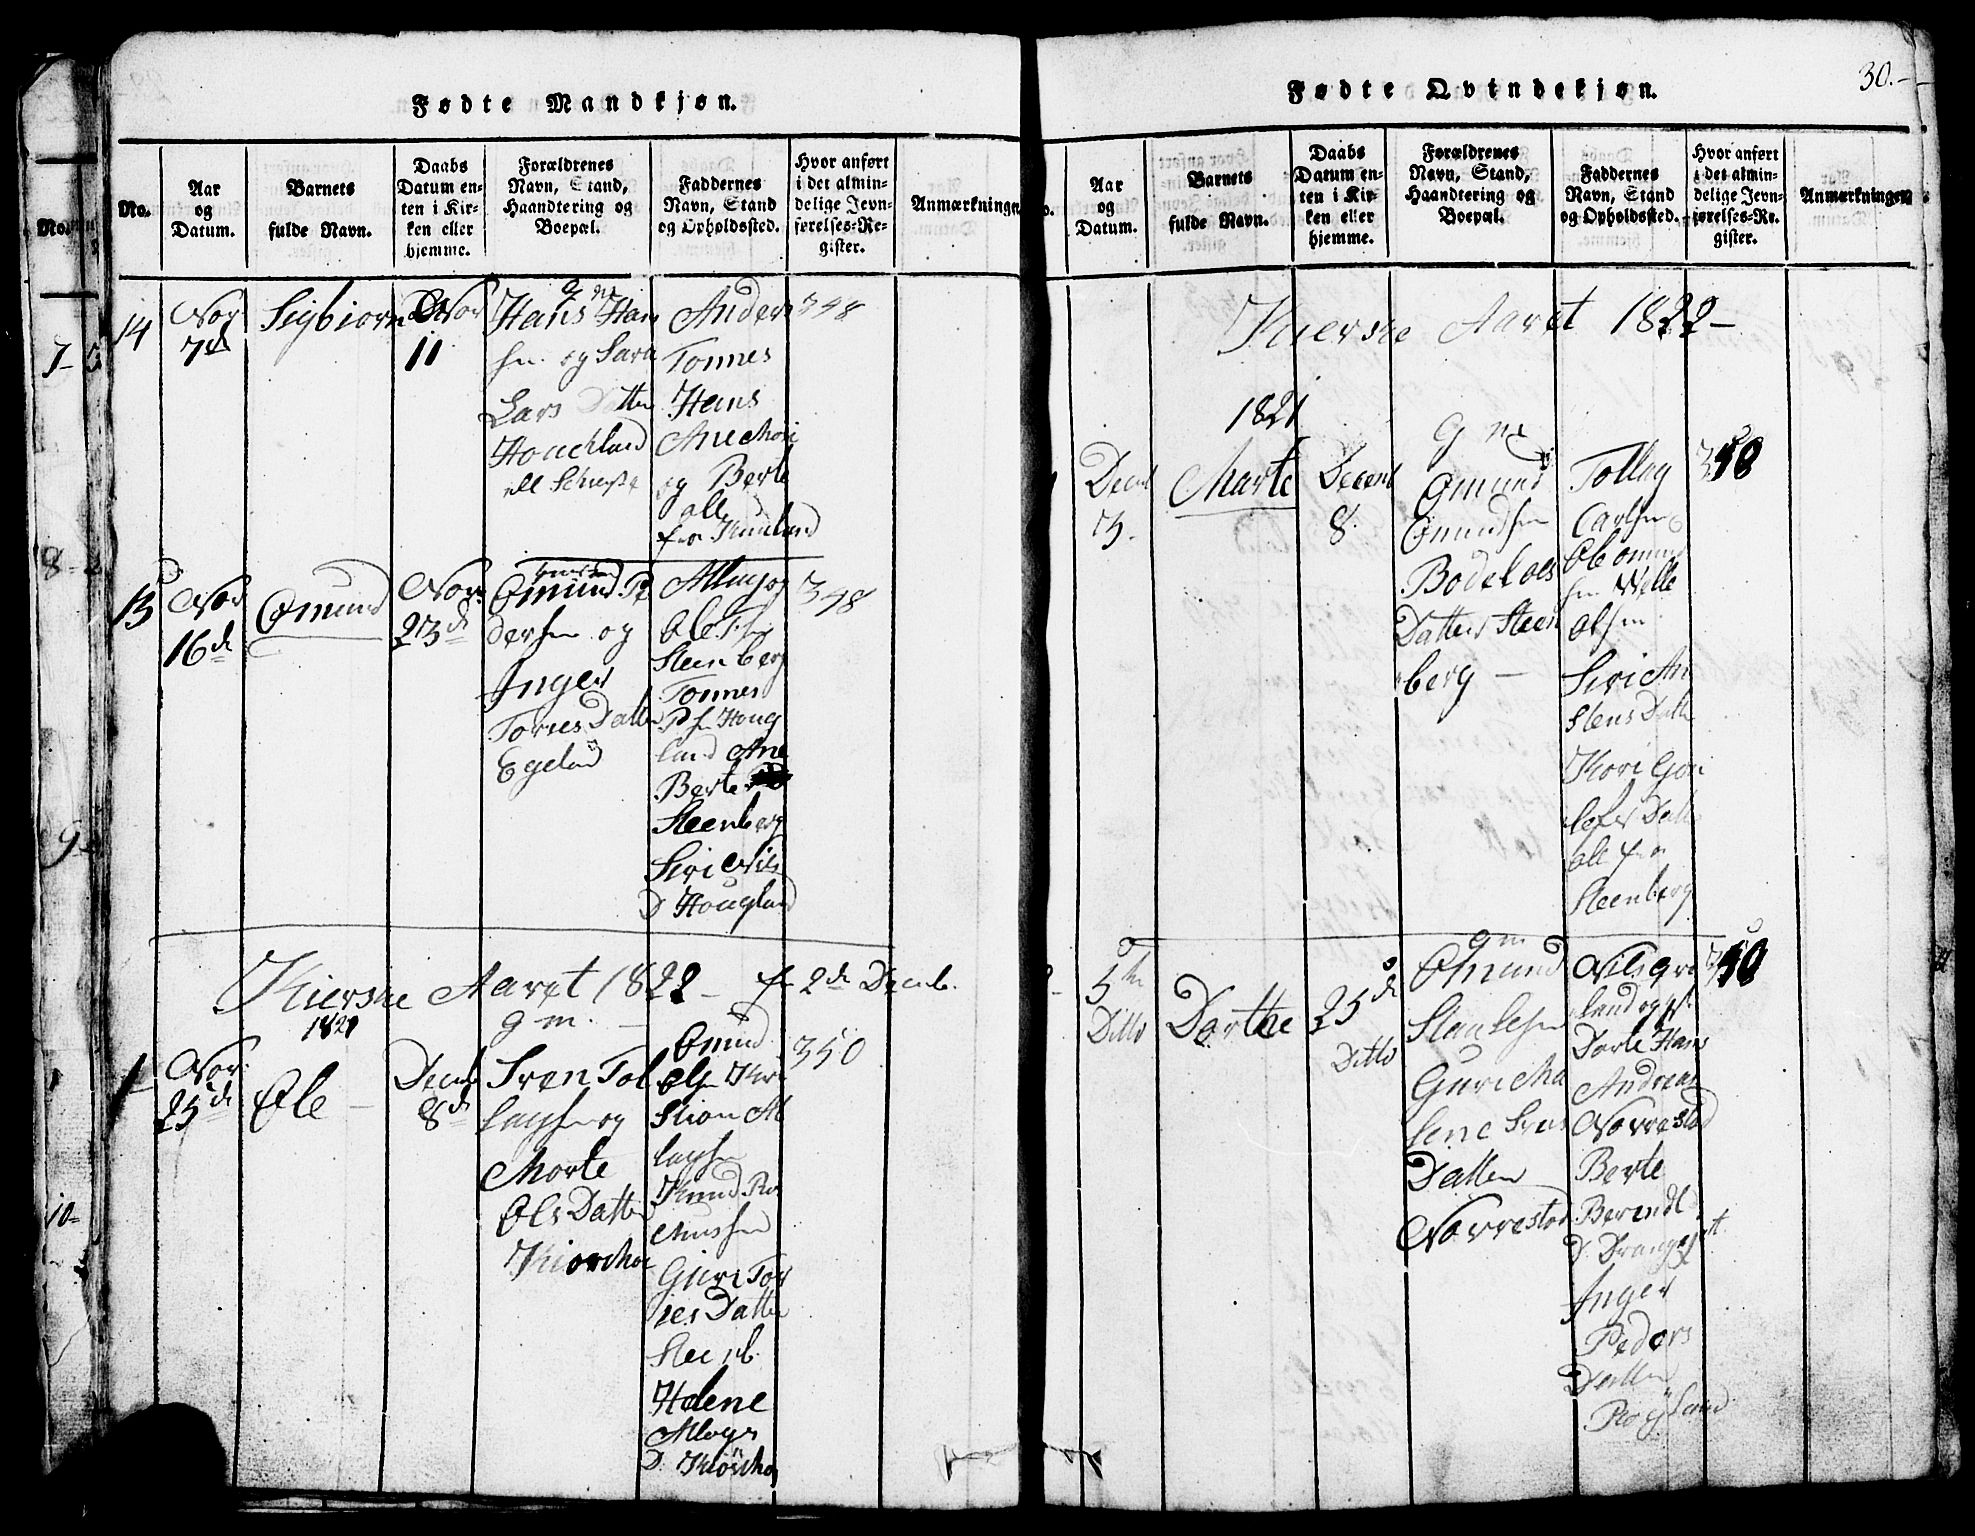 Fødte Mandkjøn.
No.
Aar
og
Datum.
Barnets
fulde Navn.
Daabs
Datum en-
ten i Kir-
ken eller
hjemme.
Forældrenes
Navn, Stand,
Haandtering og
Boepæl.
Faddernes
Navn, Stand
og Opholdssted.
Hvor anført
i det almin-
delige Jevn-
førelses-Re-
gister.
Anmærkninger
14
Nov
7de
Sigbiorn
Nov
11
g m
Hans Han
sn og Sara
Lars Datter
Houchland
Anders
Tonnes
Hans
Ane
og Berte
all
fra
348
15
Nov
16de
Omund
Nov
23de
Omund Pe
dersen og
Inger
Torres Datter
Egeland
Allag og
Ole
Steenberg
Tonnes
P sn Houg
land Ane
Berte
Steenberg
Siri Nils
D Hougland
348
Kierske Aaret 1822 – fr 2de Decemb.
1821
1
Nov.
25de
Ole –
Decemb
8de
g m.
Sven Tol
lagsen og
Morte
Ols Datter
Omund
Olsn
stian Al
lagsn
Knud Ra
Guri Tor
res Datter
Steenb.
Helene
Allags
D.
350
Fødte Qvindekjøn.
30.–
Aar
og
Datum.
Barnets
fulde Navn.
Daabs
Datum en-
ten i Kir-
ken eller
hjemme.
Forældrenes
Navn, Stand,
Haandtering og
Boepæl.
Faddernes
Navn, Stand
og Opholdssted.
Hvor anført
i det almin-
delige Jevn-
førelses-Re-
gister.
Anmærkninger
Kierske Aaret 1822 –
1821
Decemb
3.
Marte
Decemb
8.
g m
Omund
Omundsen
Bodel Ols
Datter Steen
berg –
Tollag
Carlsen
Ole Omund
sn Welle
Olsen
Siri An
stens Datter
Kori Gon
lefs Datter
all fra
Steenberg
350
5te
Ditto
Dorthe
25de
Ditto
g m
Omund
Stanlesen
Guri Ma
lene Svens
Datter
Norrestad
Nils
land og
Dorte Hans
Andreas
Norrestad
Berte
Berendt
D.
Inger
Peders
Datter
350